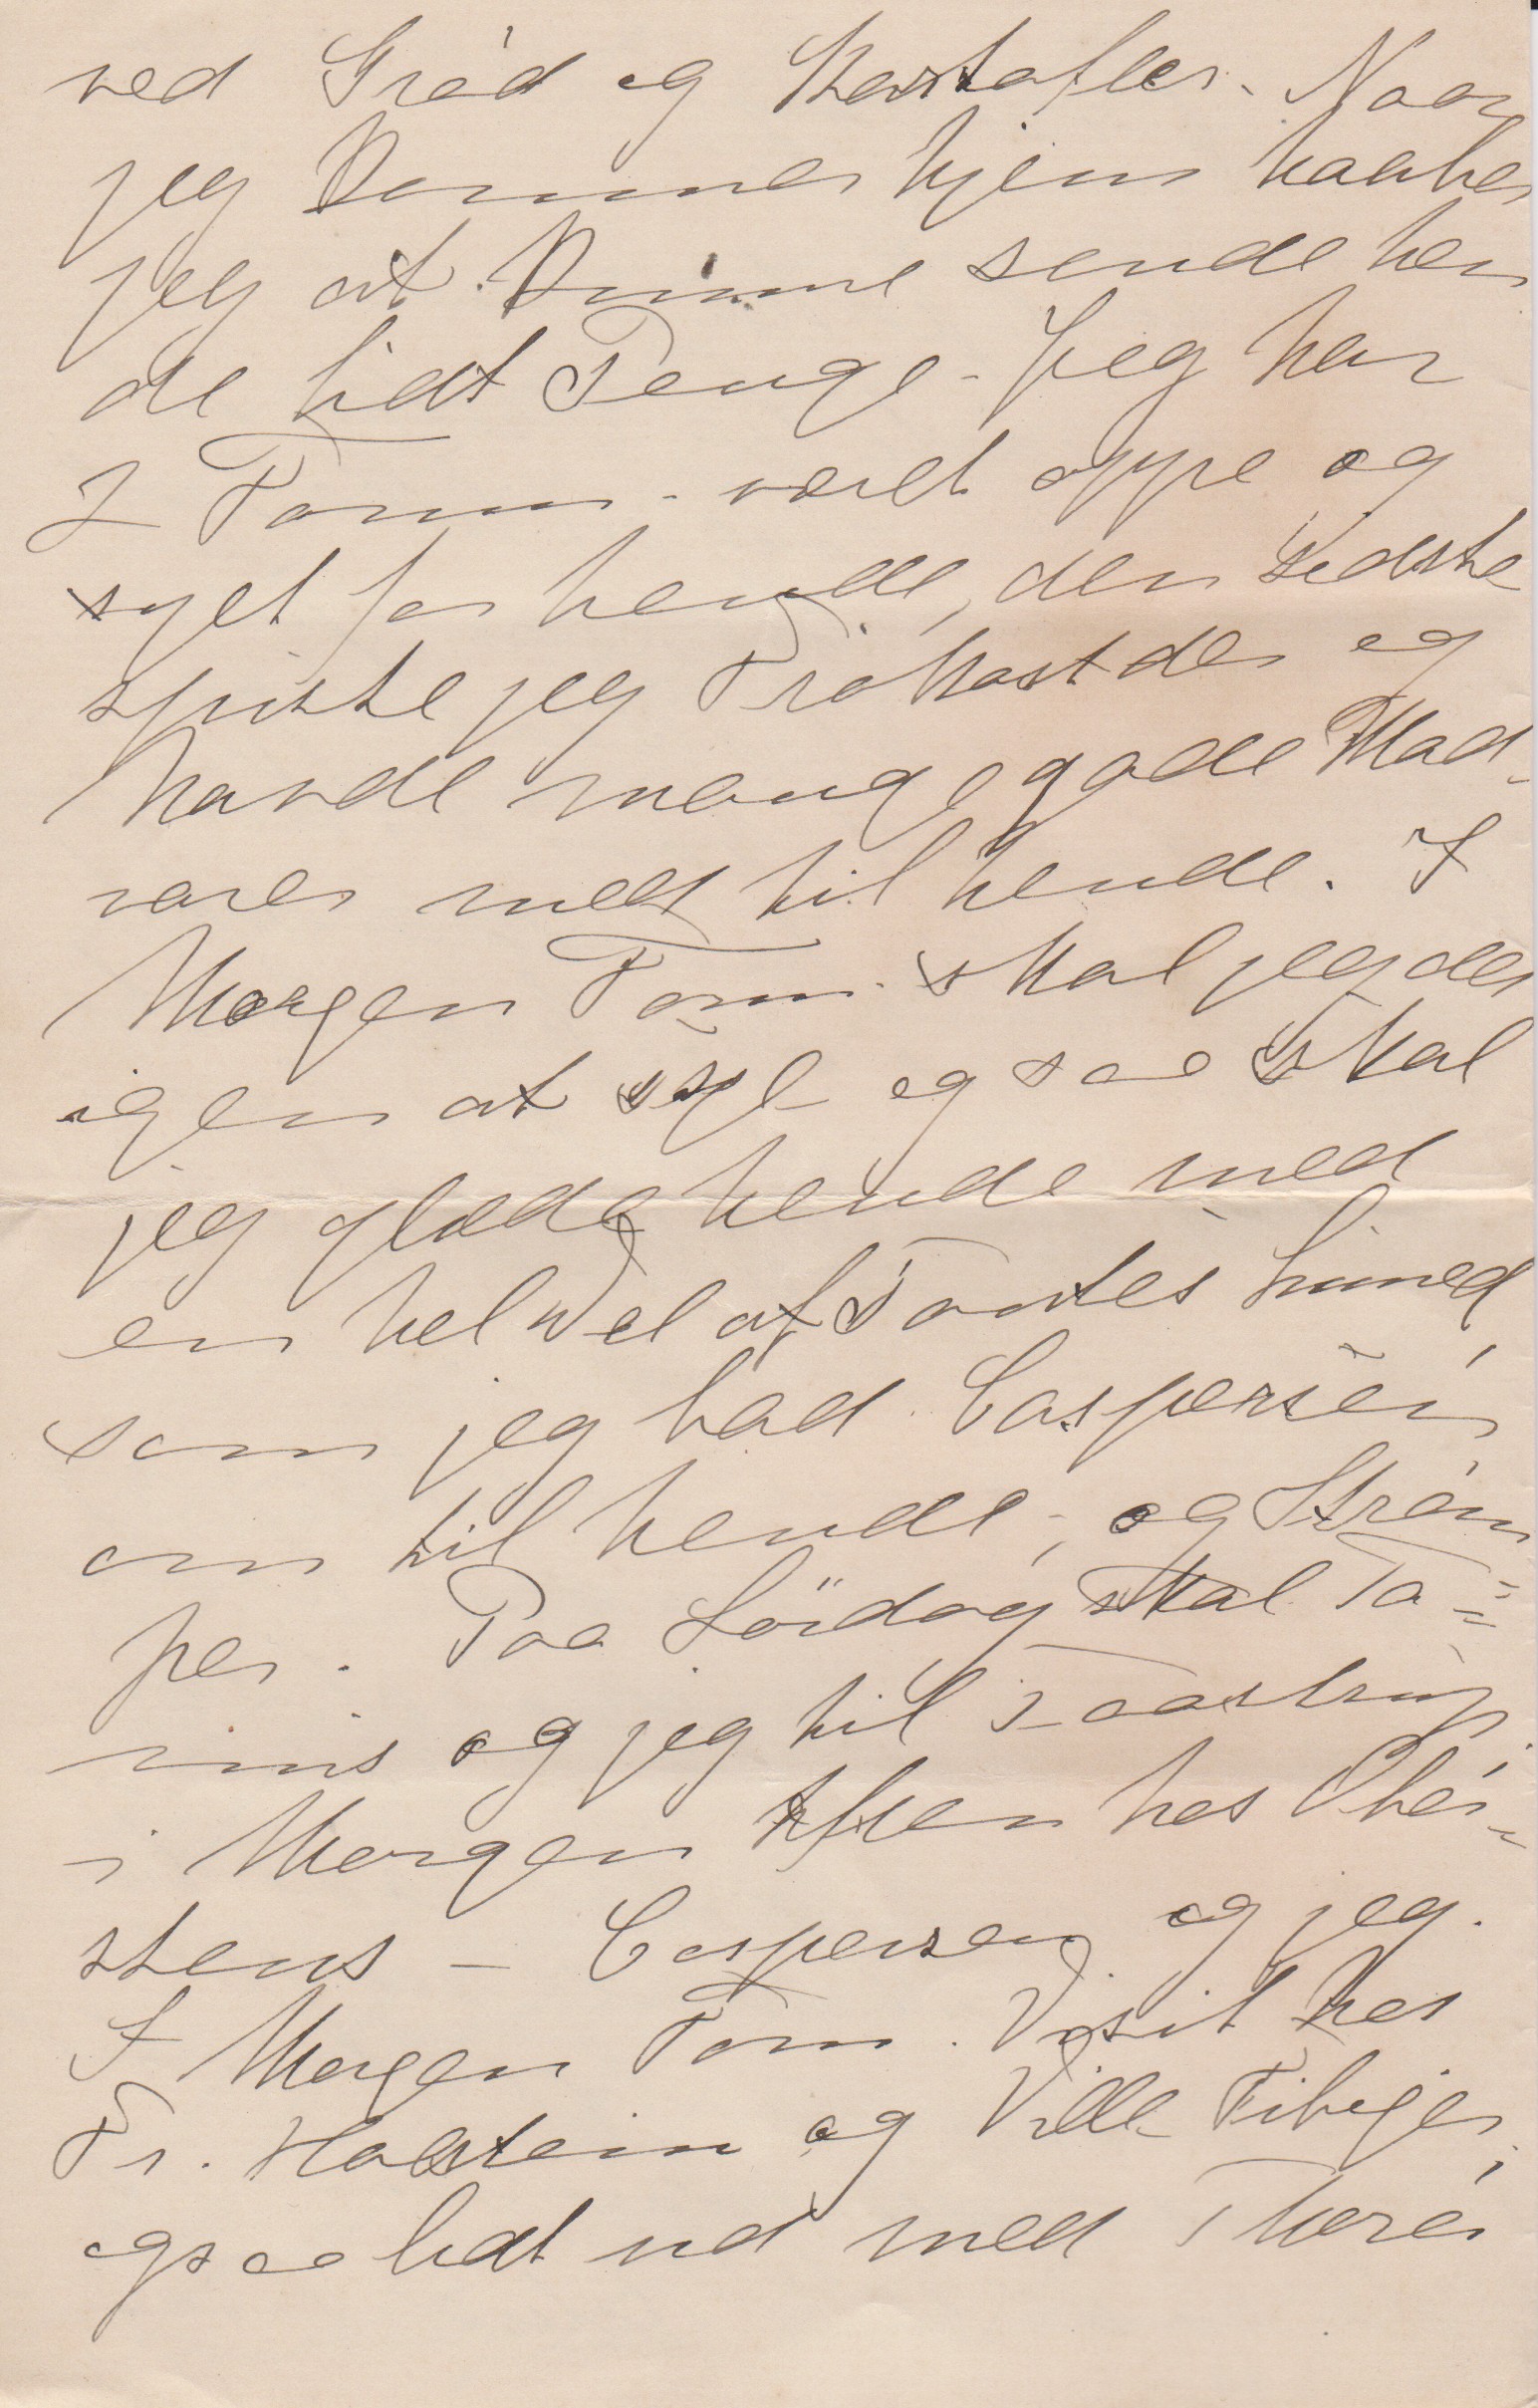 ved Gröd og Kartofler. Naar
jeg kommer hjem haaber
jeg at kunne sende hen
de lidt Penge - Jeg har
I Form. været oppe og
syet for hende, den sidste
spiste jeg Frökost der og
havde mange gode Mad-
varer med til hende. I
Morgen Form. skal jeg der
igen at sye og saa skal
jeg glæde hende med
en hel Del af Tantes Linned,
som jeg bad Caspersen
om til hende, og Ström
per. Paa Lördag skal Ta=
nis og jeg til Taastrup.
i Morgen Aften hos Ober-
stens - Caspersen og jeg.
I Morgen Form. Visit hos
Fr. Holstein og Ville Fibiger,
ogsaa lidt ud med Thora